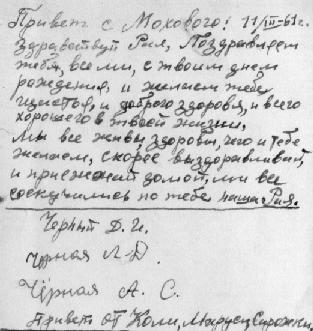 Привет с Мохового! 11/III-61г.
Здравствуй Рая, Поздравляем
тебя, все мы, с твоим днем
рождения, и желаем тебе
щастья, и доброго здоровя, и всего
хорошего в твоей жизни,
Мы все живы, здоровы, чего и тебе
желаем, скорее выздоравливай,
и приезжай домой, мы все
соскучились по тебе наша Рая.
Черный Д. И.
Чорная Л-Д.
Чёрная А. С.
Привет от Коли, Маруси, Сирожки.